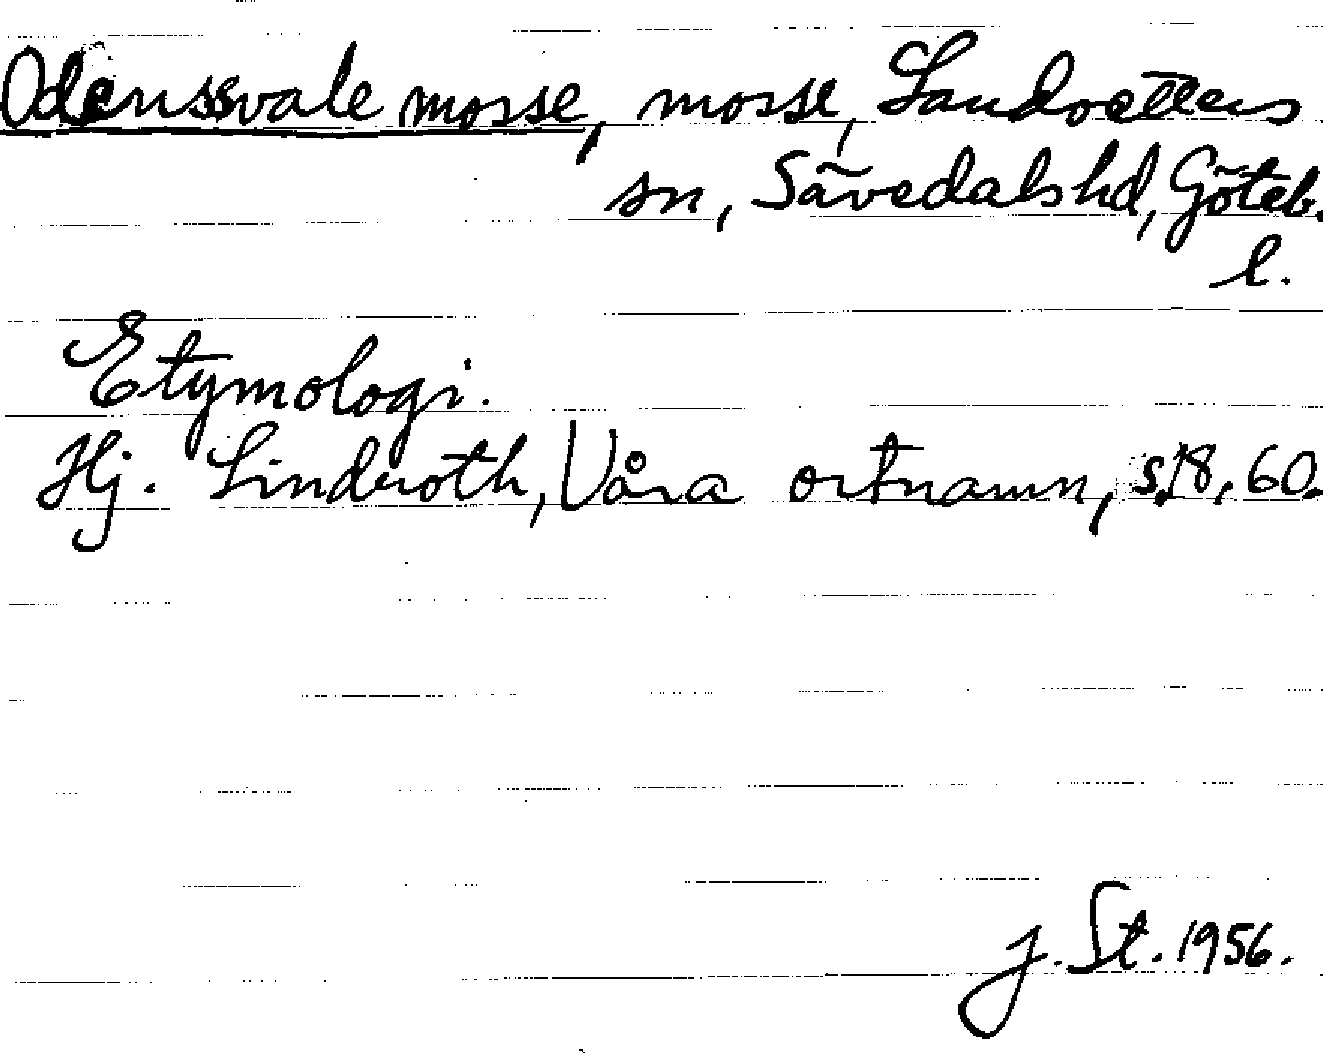 Odenssvale mosse, mosse, Landvetters
sn, Sävedals hd, Göteb.
l.
Etymologi.
Hj. Lindroth, Våra ortnamn, s. 18, 60.
J. St. 1956.